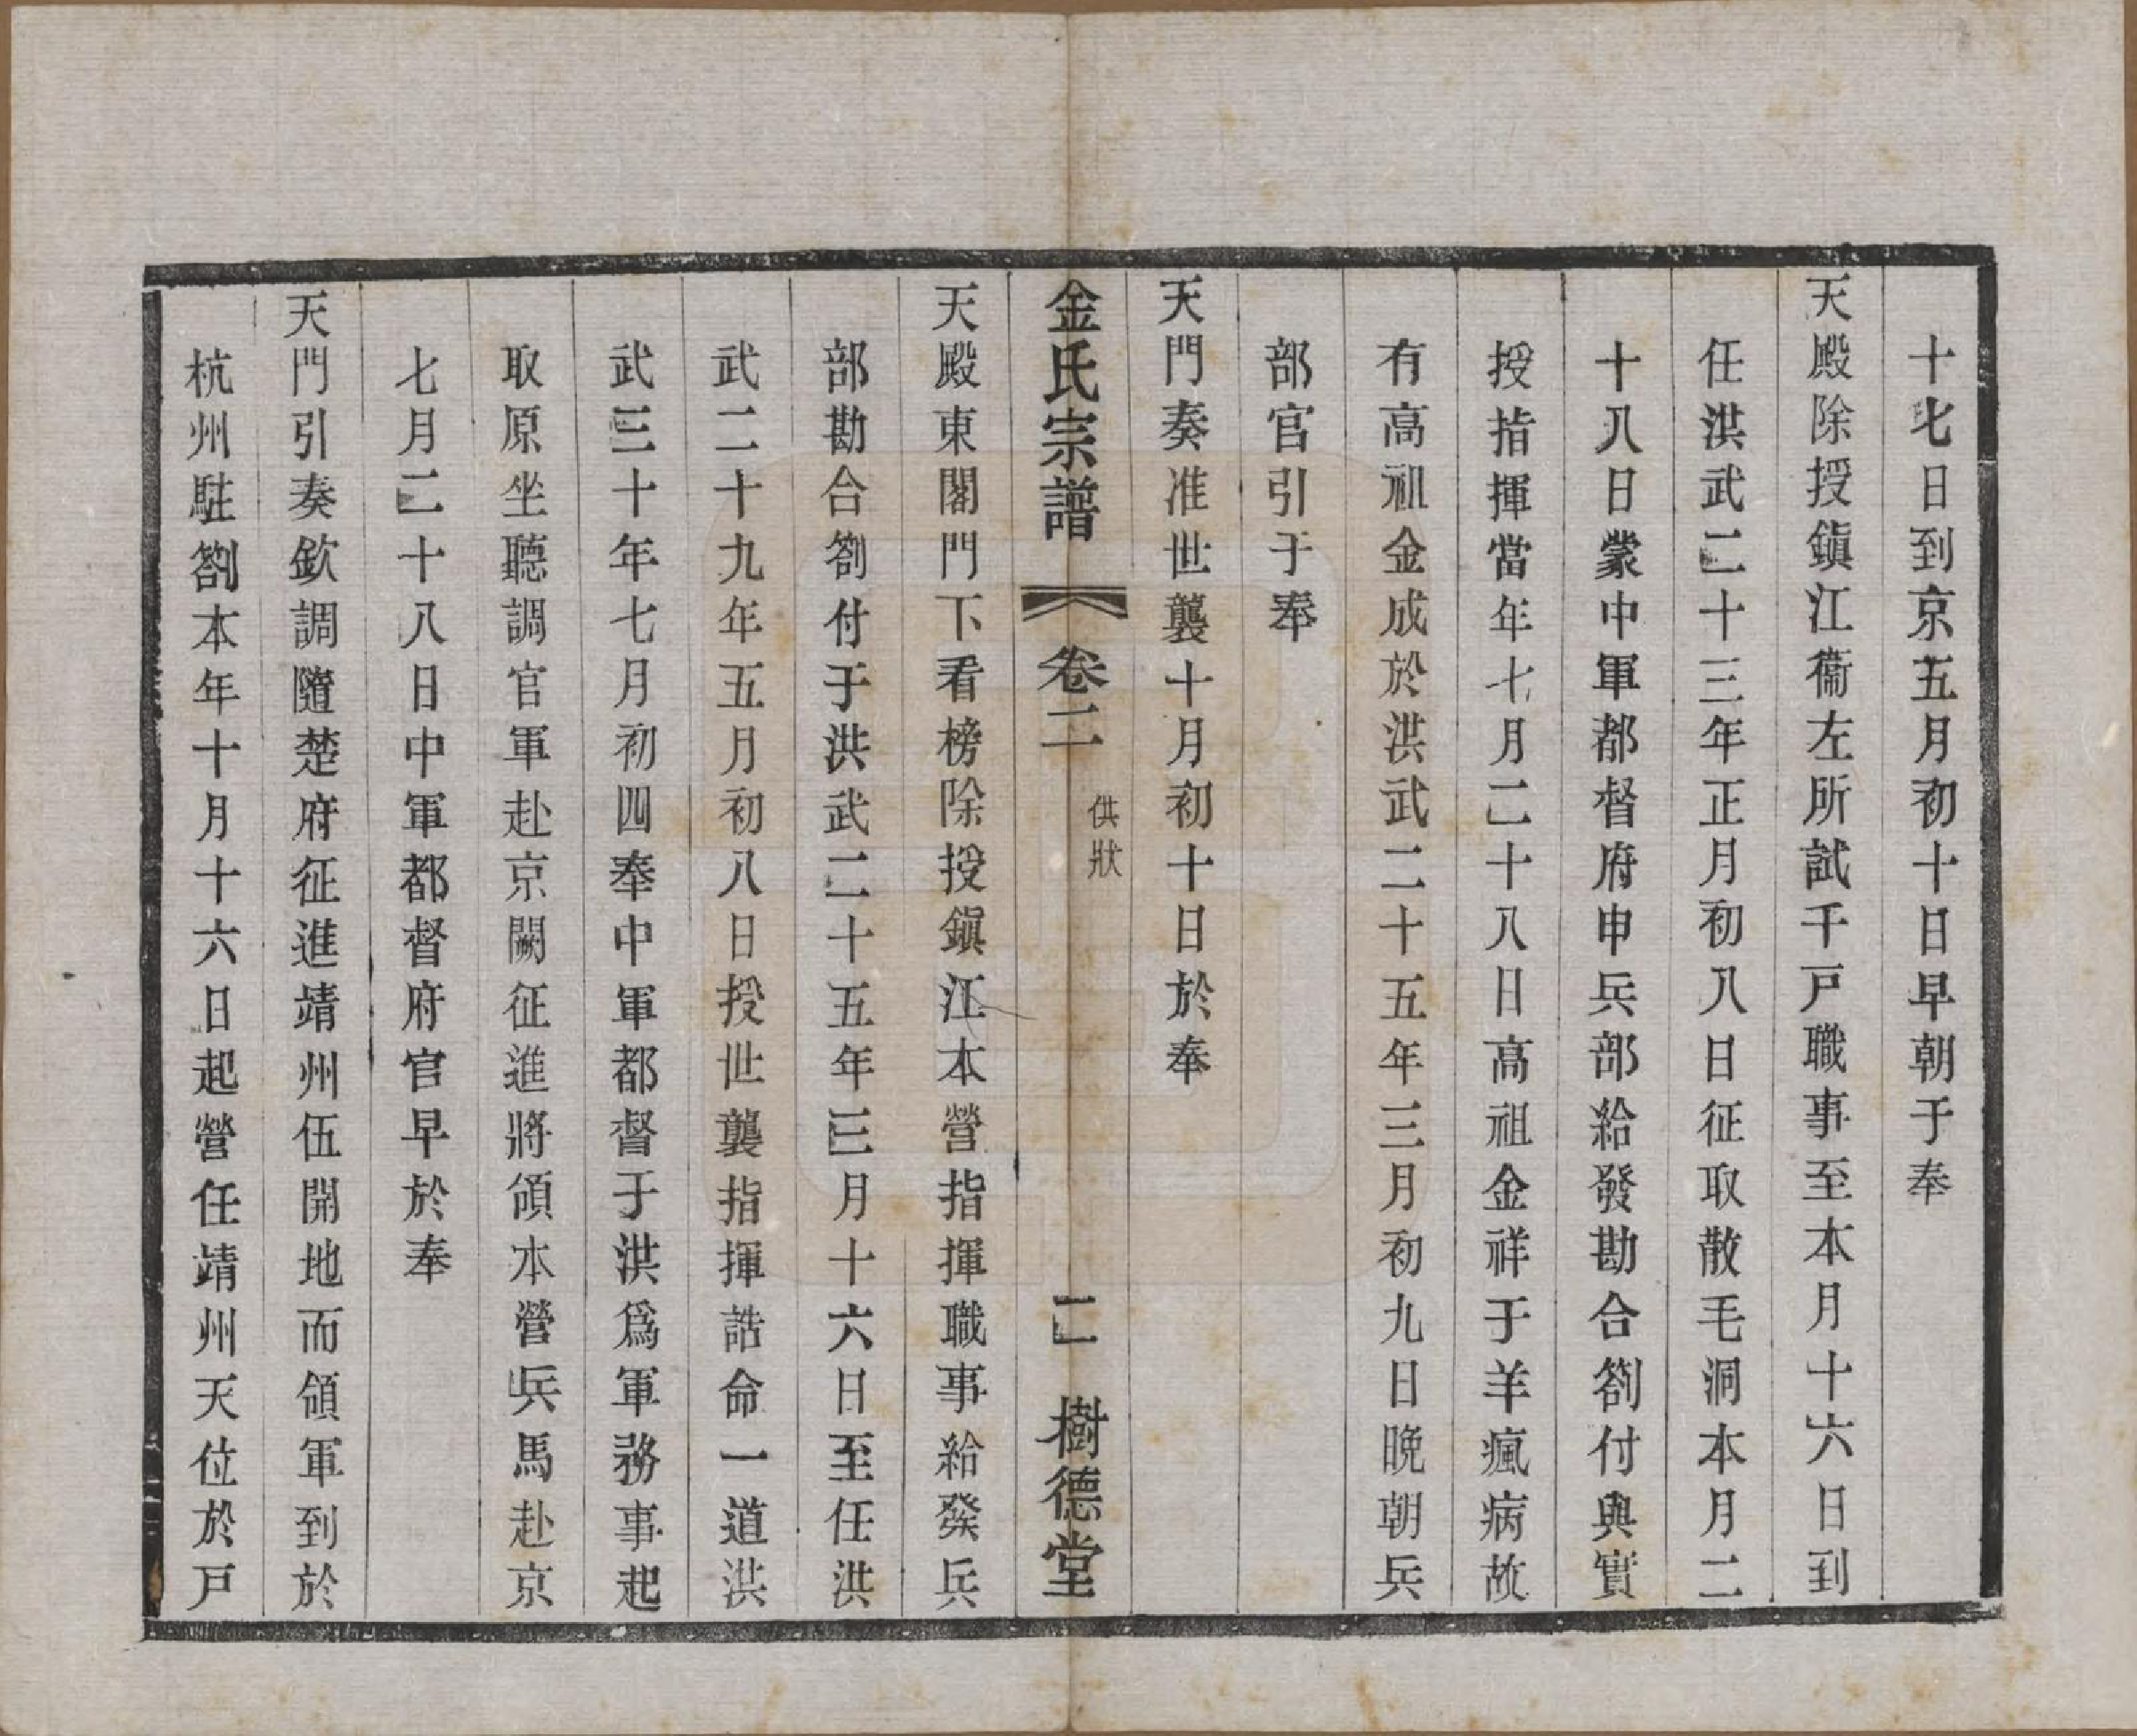 十七日到京五月初十日早朝于奉
天殿除授鎭江衞左所試千戸職事至本月十六日到
任洪武二十三年正月初八日征取散毛洞本月二
十八日蒙中軍都督府申兵部給發勘合劄付與實
授指揮當年七月二十八日高祖金祥于羊瘋病故
有高祖金成於洪武二十五年三月初九日晚朝兵
部官引于奉
天門奏准世襲十月初十日於奉
金氏宗譜 卷二 供狀 二 樹德堂
天殿東閣門下看榜除授鎭江本營指揮職事給發兵
部勘合劄付于洪武二十五年三月十六日至任洪
武二十九年五月初八日授世襲指揮誥命一道洪
武三十年七月初四奉中軍都督于洪爲軍務事起
取原坐聽調官軍赴京闕征進將領本營兵馬赴京
七月二十八日中軍都督府官早於奉
天門引奏欽調隨楚府征進靖州伍開地而領軍到於
杭州駐劄本年十月十六日起營任靖州天位於戸